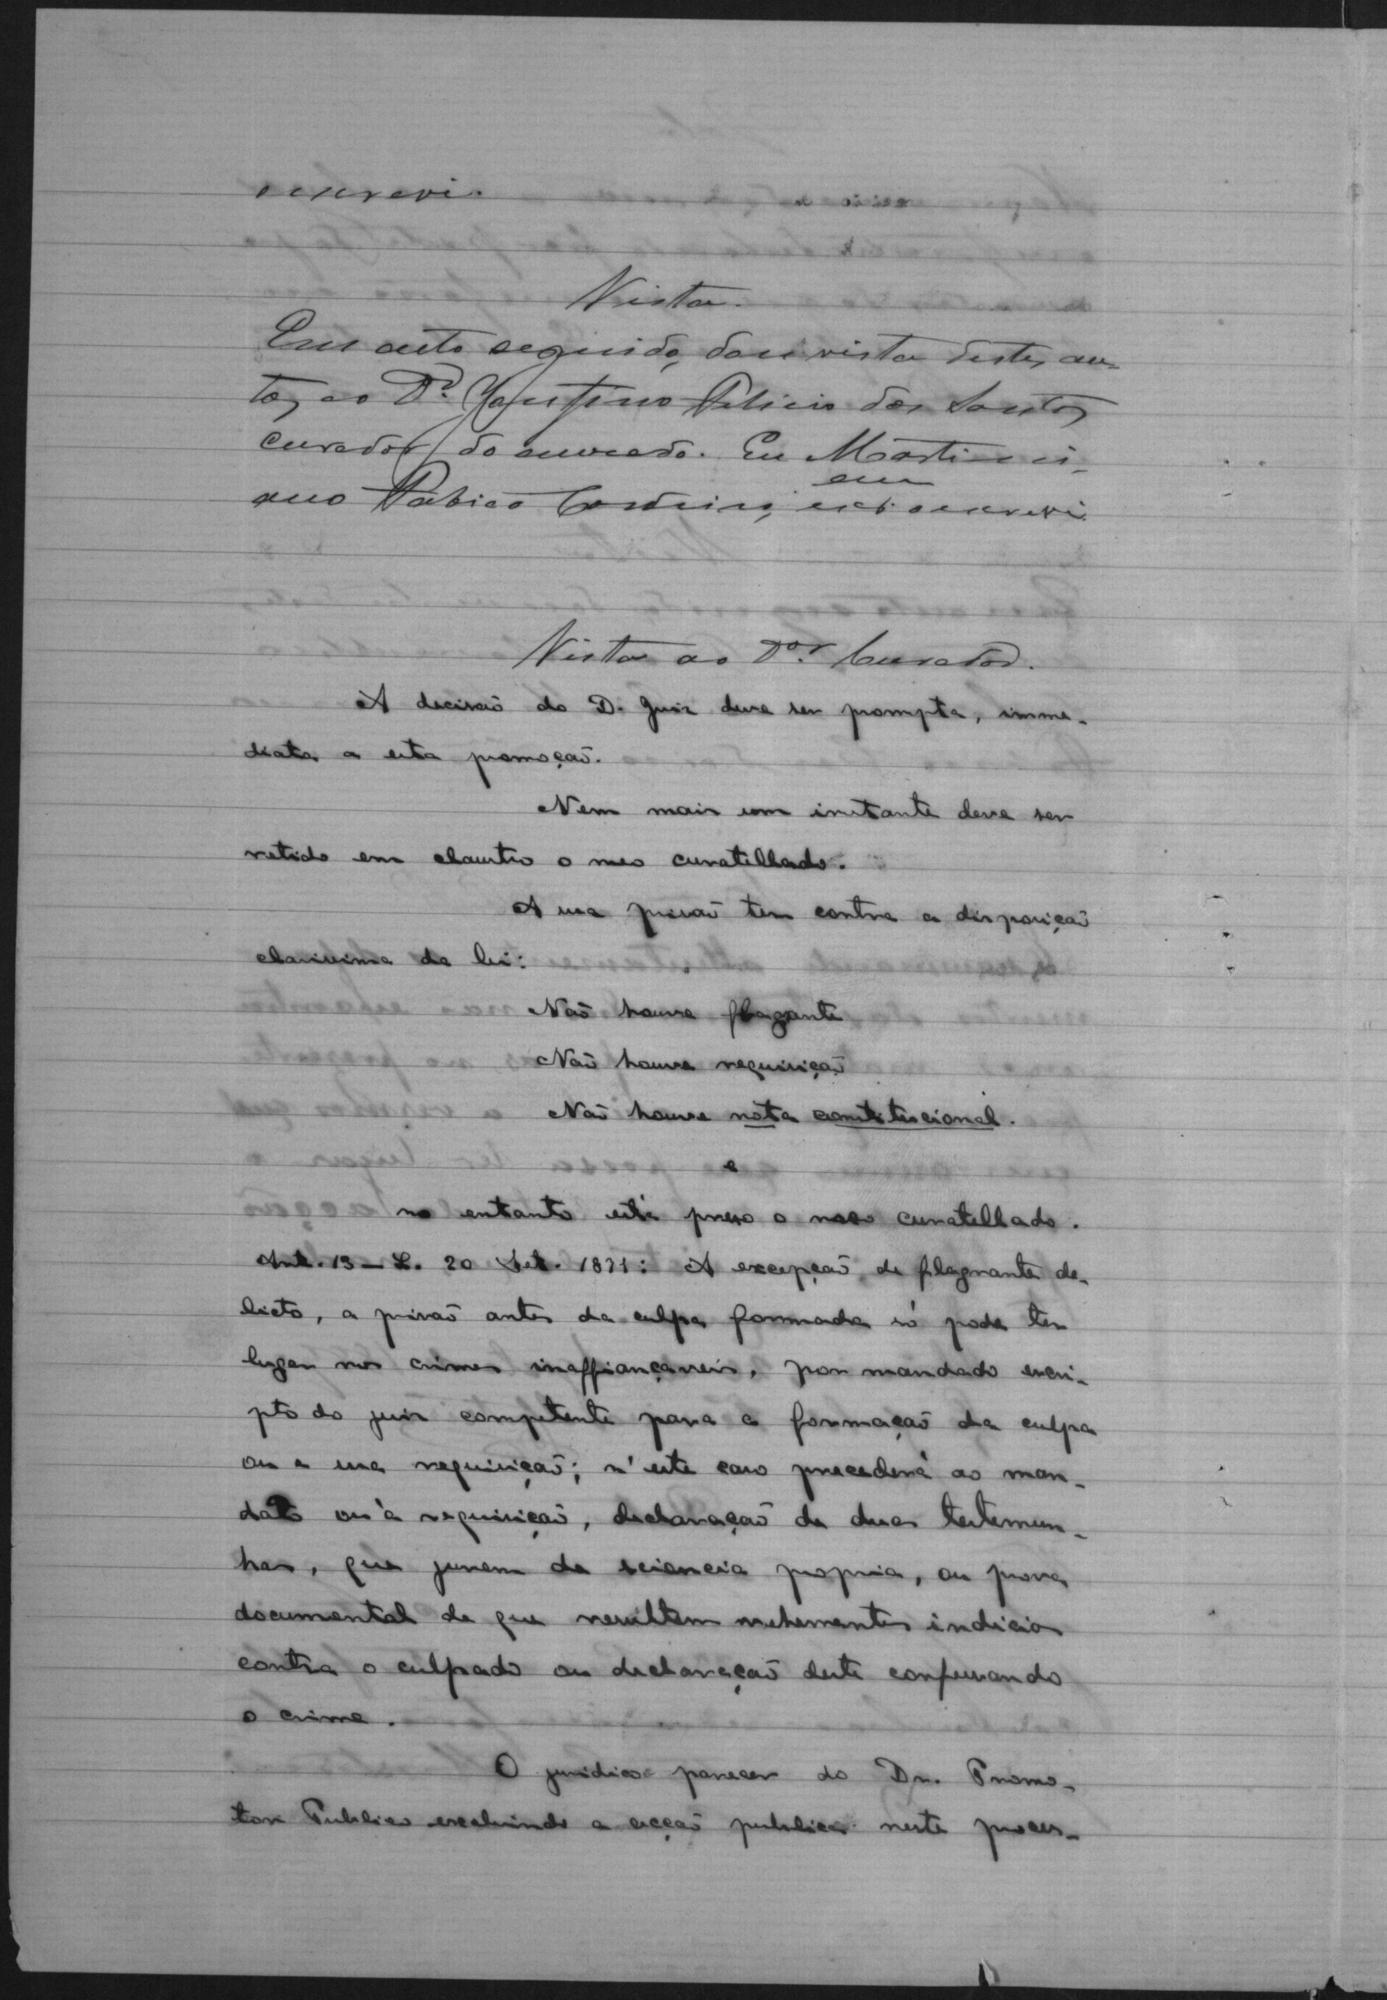 o escrevi.
Vista.
Em acto seguido, dou vista destes au-
tos ao Dr. Justino Felicio dos Santos
curador do accusado. Eu Martini-
ano Fabião Cordeiro, escr.am o escrevi.
Vista ao Dor. Curador.
A decisão do D. Juiz deve ser prompta, imme-
diata a esta promoção.
Nem mais um instante deve ser
retido em claustro o meo curatellado.
A sua prisão tem contra a disposição
clarissima da lei:
Não houve flagante
Não houve requisição
Não houve nota constitucional.
e
no entanto está preso o meo curatellado.
Art. 13 – L. 20 Set. 1871: A excepção de flagrante de-
licto, a prisão antes da culpa formada só pode ter
lugar nos crimes inaffiançaveis, por mandado escri-
pto do juiz competente para a formação da culpa
ou a sua requisição; n'este caso precederá ao man-
dato ou á requisição, declaração de duas testemun-
has, que jurem de sciencia propria, ou prova
documental de que resultem vehementes indicios
contra o culpado ou declaração deste confessando
o crime.
O juridico parecer do Dr. Promo-
tor Publico excluindo a acção publica neste proces-